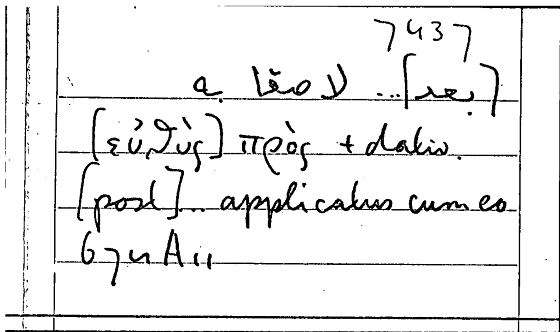 7437
[بعد] ... لاصقا به
[εὐθὺς] πρὸς + dativ.
[post] ... applicatus cum eo